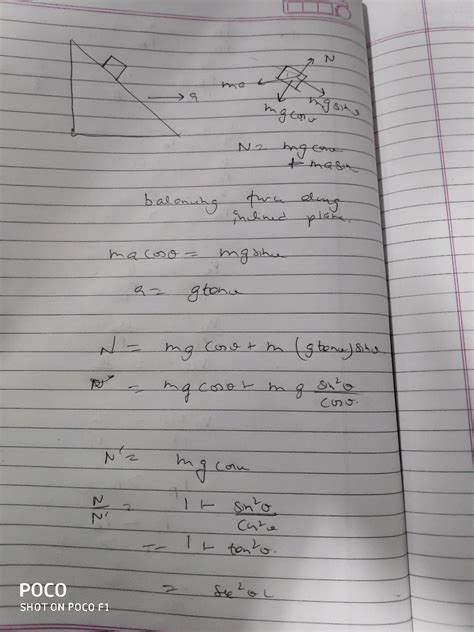 N
ma
a
mg cosθ
mg sinθ
N = mg cosθ
+ masinθ
balancing force along
inclined plane.
ma cosθ = mg sinθ
a = g tanθ
N = mg cosθ + m (g tanθ) sinθ
= mg cosθ + mg sin²θ/cosθ
N' = mg cosθ
N/N' = 1 + sin²θ/cos²θ
= 1 + tan²θ
= sec²θ
POCO
SHOT ON POCO F1